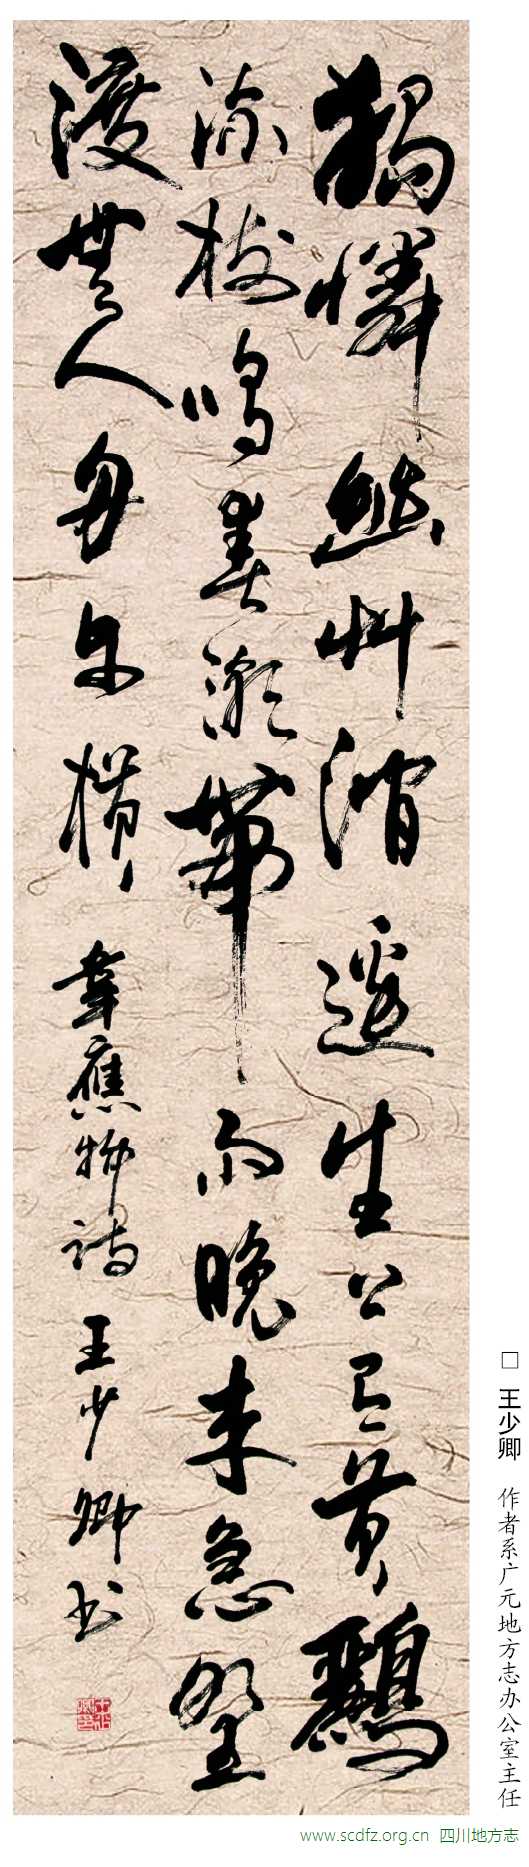 獨憐幽艸澗邊生上有黄鸝
深樹鳴春潮帶雨晚来急野
渡無人舟自横 韋應物詩 王少卿书
□ 王少卿 作者系广元地方志办公室主任
www.scdfz.org.cn 四川地方志